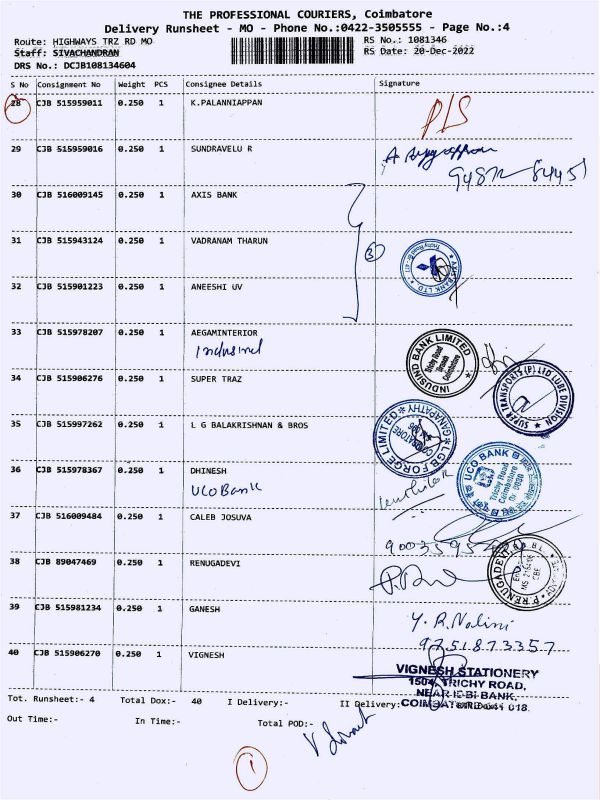 THE PROFESSIONAL COURIERS, Coimbatore
Delivery Runsheet - MO - Phone No.:0422-3505555 - Page No.:4
Route: HIGHWAYS TRZ RD MO
RS No.: 1081346
Staff: SIVACHANDRAN
RS Date: 20-Dec-2022
DRS No.: DCJB108134604
S No Consignment No Weight PCS Consignee Details Signature
28 CJB 515959011 0.250 1 K.PALANNIAPPAN
29 CJB 515959016 0.250 1 SUNDRAVELU R
30 CJB 516009145 0.250 1 AXIS BANK
31 CJB 515943124 0.250 1 VADRANAM THARUN
3
32 CJB 515901223 0.250 1 ANEESHI UV
33 CJB 515978207 0.250 1 AEGAMINTERIOR
Indusind
INDUSIND BANK LIMITED
Trichy Road
Branch
Coimbatore
34 CJB 515906276 0.250 1 SUPER TRAZ
SUPER TRANSPORTS (P) LTD LUBE DIVISION
35 CJB 515997262 0.250 1 L G BALAKRISHNAN & BROS
LGB FORGE LIMITED
GANAPATHY
36 CJB 515978367 0.250 1 DHINESH
UCO Bank
UCO BANK
Trichy Road
Coimbatore
37 CJB 516009484 0.250 1 CALEB JOSUVA
38 CJB 89047469 0.250 1 RENUGADEVI
P. RENUGADEVI
CBE
39 CJB 515981234 0.250 1 GANESH
Y. R. Nalini
9751873357
40 CJB 515906270 0.250 1 VIGNESH
VIGNESH STATIONERY
1504, TRICHY ROAD,
COIMBATORE-641 018.
Tot. Runsheet:- 4 Total Dox:- 40 I Delivery:- II Delivery:
Out Time:- In Time:- Total POD:-
1